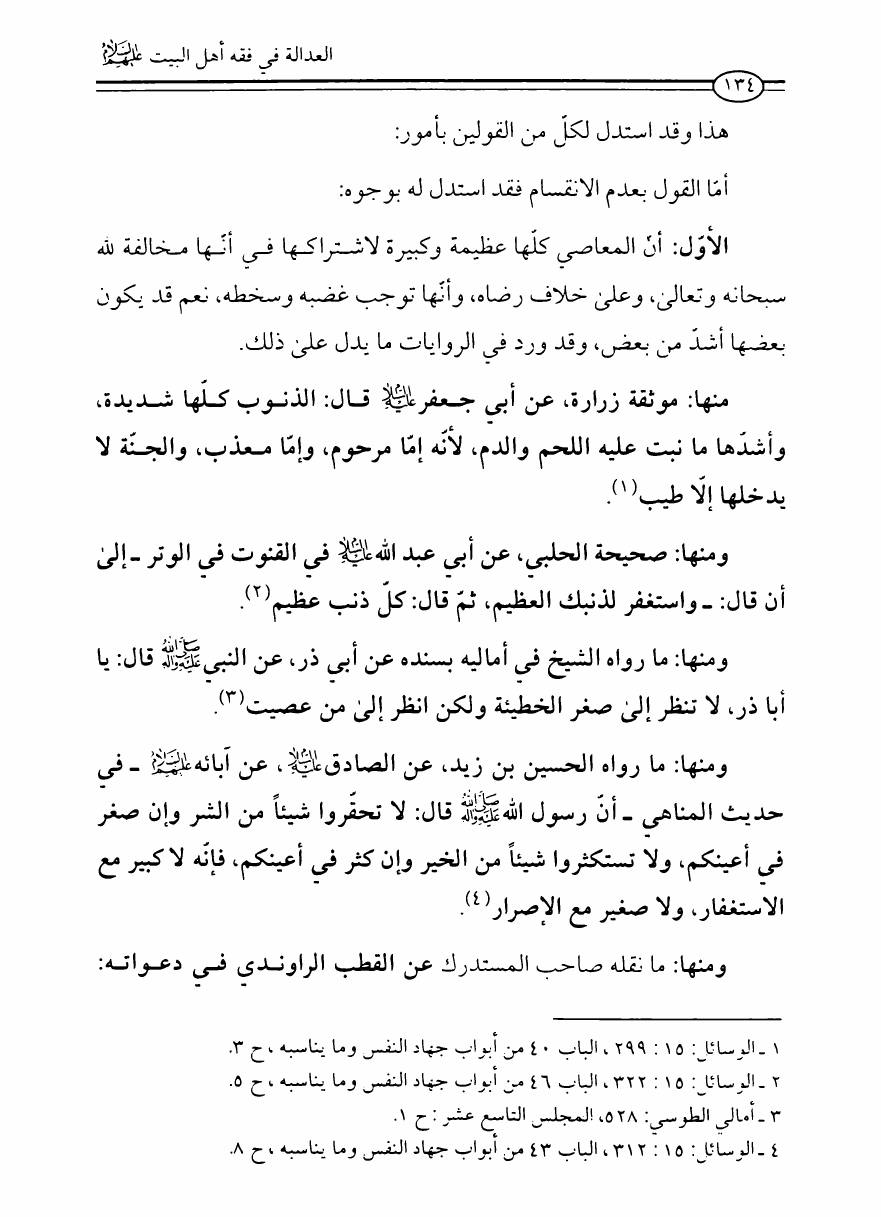 العدالة في فقه أهل البيت عليهم السلام
١٣٤
هذا وقد استدل لكلّ من القولين بأمور:
أمّا القول بعدم الانقسام فقد استدل له بوجوه:
الأوّل: أنّ المعاصي كلّها عظيمة وكبيرة لاشتراكها في أنّها مخالفة لله
سبحانه وتعالىٰ، وعلىٰ خلاف رضاه، وأنّها توجب غضبه وسخطه، نعم قد يكون
بعضها أشدّ من بعض، وقد ورد في الروايات ما يدل علىٰ ذلك.
منها: موثقة زرارة، عن أبي جعفر عليه السلام قال: الذنوب كلّها شديدة،
وأشدّها ما نبت عليه اللحم والدم، لأنّه إمّا مرحوم، وإمّا معذب، والجنّة لا
يدخلها إلّا طيب(١).
ومنها: صحيحة الحلبي، عن أبي عبد الله عليه السلام في القنوت في الوتر ـ إلىٰ
أن قال: ـ واستغفر لذنبك العظيم، ثمّ قال: كلّ ذنب عظيم(٢).
ومنها: ما رواه الشيخ في أماليه بسنده عن أبي ذر، عن النبي صلى الله عليه وآله قال: يا
أبا ذر، لا تنظر إلىٰ صغر الخطيئة ولكن انظر إلىٰ من عصيت(٣).
ومنها: ما رواه الحسين بن زيد، عن الصادق عليه السلام، عن آبائه عليهم السلام ـ في
حديث المناهي ـ أنّ رسول الله صلى الله عليه وآله قال: لا تحقّروا شيئاً من الشر وإن صغر
في أعينكم، ولا تستكثروا شيئاً من الخير وإن كثر في أعينكم، فإنّه لا كبير مع
الاستغفار، ولا صغير مع الإصرار(٤).
ومنها: ما نقله صاحب المستدرك عن القطب الراوندي في دعواته:
١ ـ الوسائل: ١٥ : ٢٩٩، الباب ٤٠ من أبواب جهاد النفس وما يناسبه، ح ٣.
٢ ـ الوسائل: ١٥ : ٣٢٢، الباب ٤٦ من أبواب جهاد النفس وما يناسبه، ح ٥.
٣ ـ أمالي الطوسي: ٥٢٨، المجلس التاسع عشر : ح ١.
٤ ـ الوسائل: ١٥ : ٣١٢، الباب ٤٣ من أبواب جهاد النفس وما يناسبه، ح ٨.